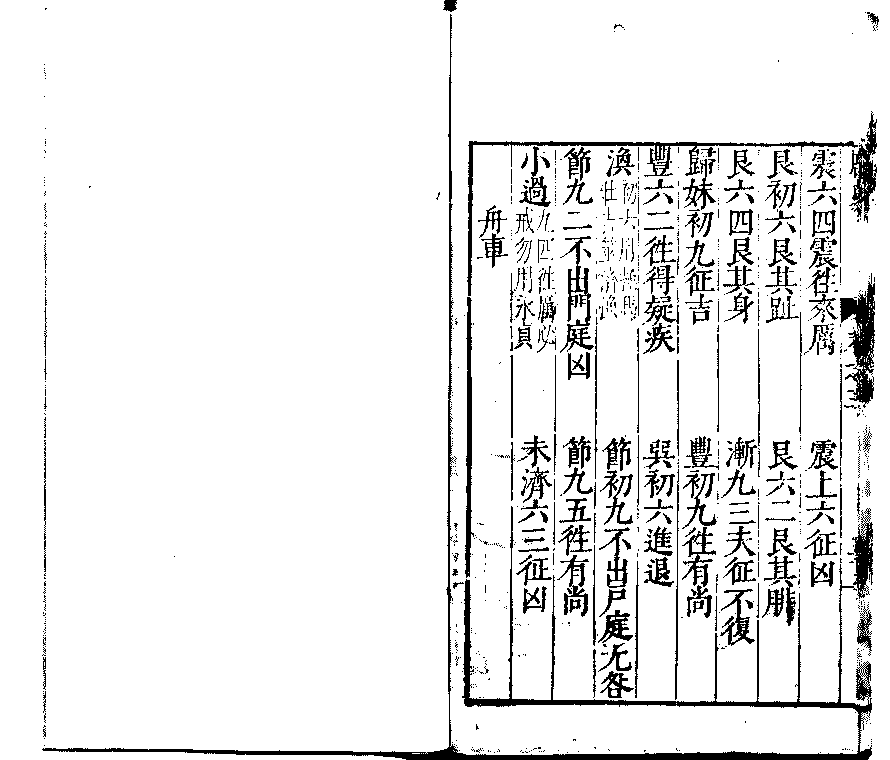 震六四震徃來厲　震上六征凶
艮初六艮其趾　艮六二艮其腓
艮六四艮其身　漸九三夫征不復
歸妹初九征吉　豐初九徃有尚
豐六二徃得疑疾　巽初六進退
渙初六用拯馬壯　節初九不出戸庭无咎
節九二不出門庭凶　節九五徃有尚
小過九四徃厲必戒勿用永貞　未濟六三征凶
舟車